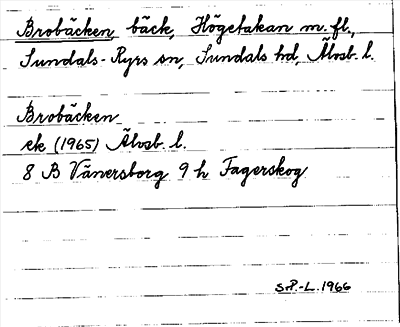 Brobäcken, bäck, Högetakan m.fl.,
Sundals-Ryrs sn, Sundals hd, Älvsb. l.
Brobäcken
ek (1965) Älvsb. l.
8 B Vänersborg 9 h Fagerskog
S.P.-L. 1966